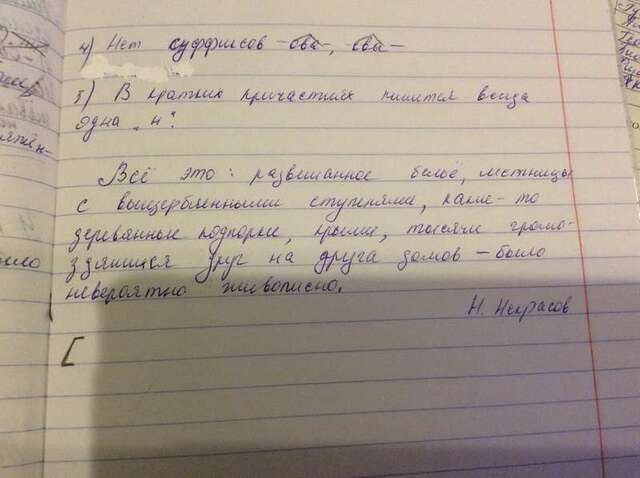 4) Нет суффиксов -ова-, -евы-
5) В кратких причастиях пишется всегда
одна „н".
Всё это: развешанное бельё, лестницы
с выщербленными ступенями, какие-то
деревянные подпорки, крыши, тысячи громо-
здящихся друг на друга домов – было
невероятно живописно.
Н. Некрасов
[